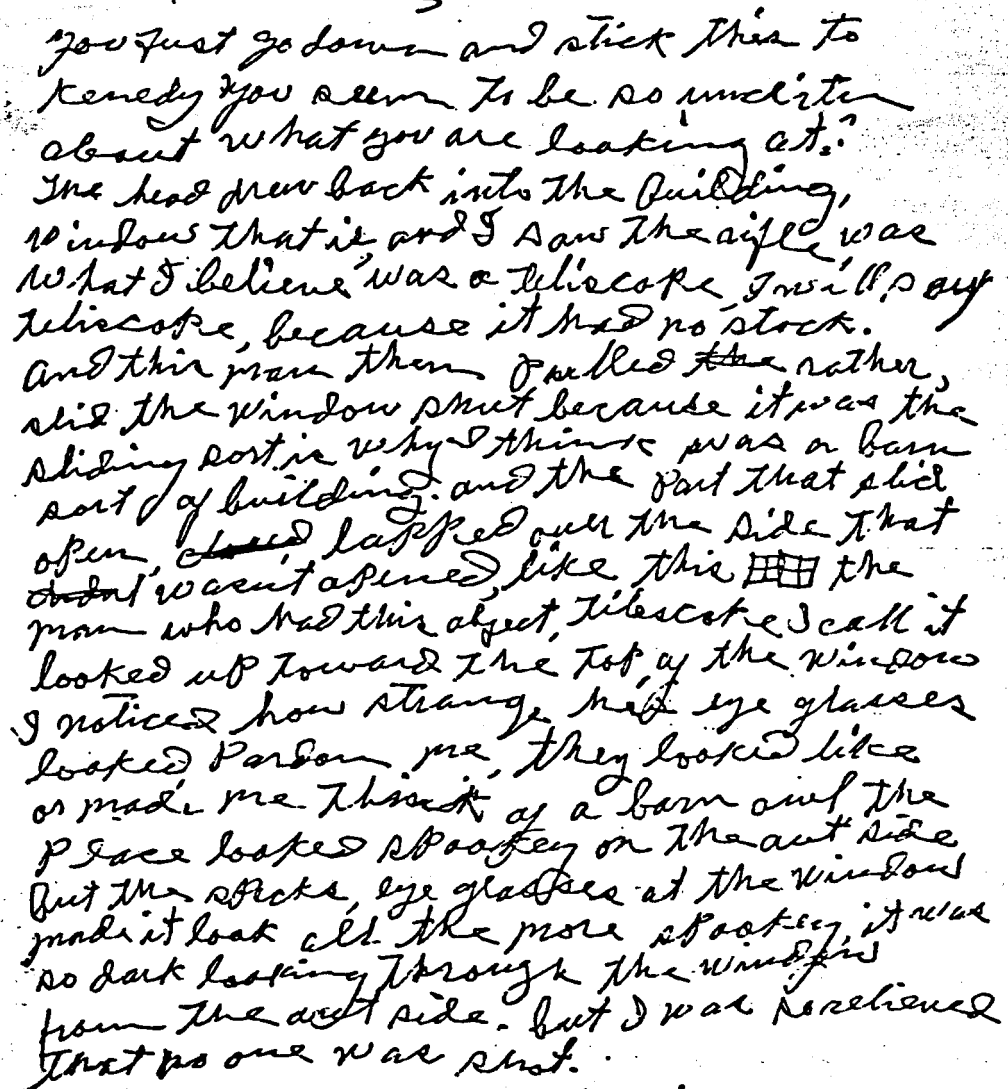 you just go down and stick this to
Kenedy you seem to be so
about what you are looking at.?
The head drew back into the Building,
window that is, and I saw the rifle, was
what I believe was a teliscope, I will say
teliscope, because it had no stock.
And this man then pulled the rather,
slid the window shut because it was the
sliding sort is why I think was a barn
sort of building. and the part that slid
open, closed, lapped over the side that
didnt wasn't opened, like this the
man who had this object, teliscope I call it
looked up toward the top of the window
I noticed how strange his eye glasses
looked, Pardon me, they looked like
or made me think of a barn owl the
place looked spookey on the out side
But the specks, eye glasses at the window
made it look all the more spookey, it was
so dark looking through the window
from the out side. but I was so relieved
that no one was shot.